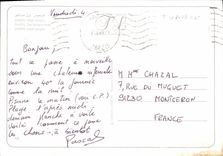 Vendredi 4
Bonjour,
tout se passe à merveille
sous une chaleur infernale
environ 40° la journée
comme la nuit
Piscine le matin (ou C.P.)
Plage l'après midi
demain planche à voile
voilà comment se passe
les choses à bientôt
Pascal
M Mme CHAZAL
7, RUE DU MUGUET
91230 MONTGERON
FRANCE